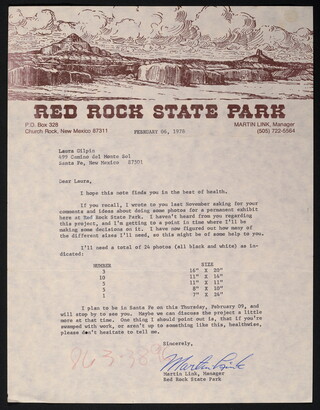 RED ROCK STATE PARK
P.O. Box 328
Church Rock, New Mexico 87311
MARTIN LINK, Manager
(505) 722-5564
FEBRUARY 06, 1978
Laura Gilpin
409 Camino del Monte Sol
Santa Fe, New Mexico 87501
Dear Laura,
I hope this note finds you in the best of health.
If you recall, I wrote to you last November asking for your
comments and ideas about doing some photos for a permanent exhibit
here at Red Rock State Park. I haven't heard from you regarding
this project, and I'm getting to a point in time where I'll be
making some decisions on it. I have now figured out how many of
the different sizes I'll need, so this might be of some help to you.
I'll need a total of 24 photos (all black and white) as in-
dicated:
NUMBER SIZE
3 16" X 20"
10 11" X 14"
5 11" X 11"
5 8" X 10"
1 7" X 16"
I plan to be in Santa Fe on this Thursday, February 09, and
will stop by to see you. Maybe we can discuss the project a little
more at that time. One thing I should point out, is that if you're
swamped with work, or aren't up to something like this, healthwise,
please don't hesitate to tell me.
Sincerely,
Martin Link
Martin Link, Manager
Red Rock State Park